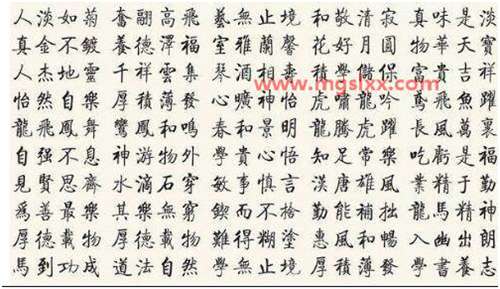 人淡如菊 奮翮高飛 藝無止境 和敬清寂 真味是淡
真金不鍍 養德澤福 室雅蘭馨 花好月圓 物華天寶
人杰地靈 千祥雲集 琴酒相 積學儲 富貴吉祥
www.mgslxx.com
怡然自樂 厚積薄發 心曠神怡 虎嘯龍吟 鳶飛魚躍
龍飛鳳舞 鸞鳳和鳴 春和景明 龍騰虎躍 長風萬裏
自强不息 神游物外 學貴心悟 知足常樂 吃虧是福
見賢思齊 水滴石穿 敏事慎言 漢唐雄風 業精于勤
爲善最樂 其樂無窮 鍥而不捨 勤能補拙 龍馬精神
厚德載物 厚德載物 難得糊塗 惠風和暢 入幽出朗
馬到功成 道法自然 學無止境 厚積薄發 學書養志